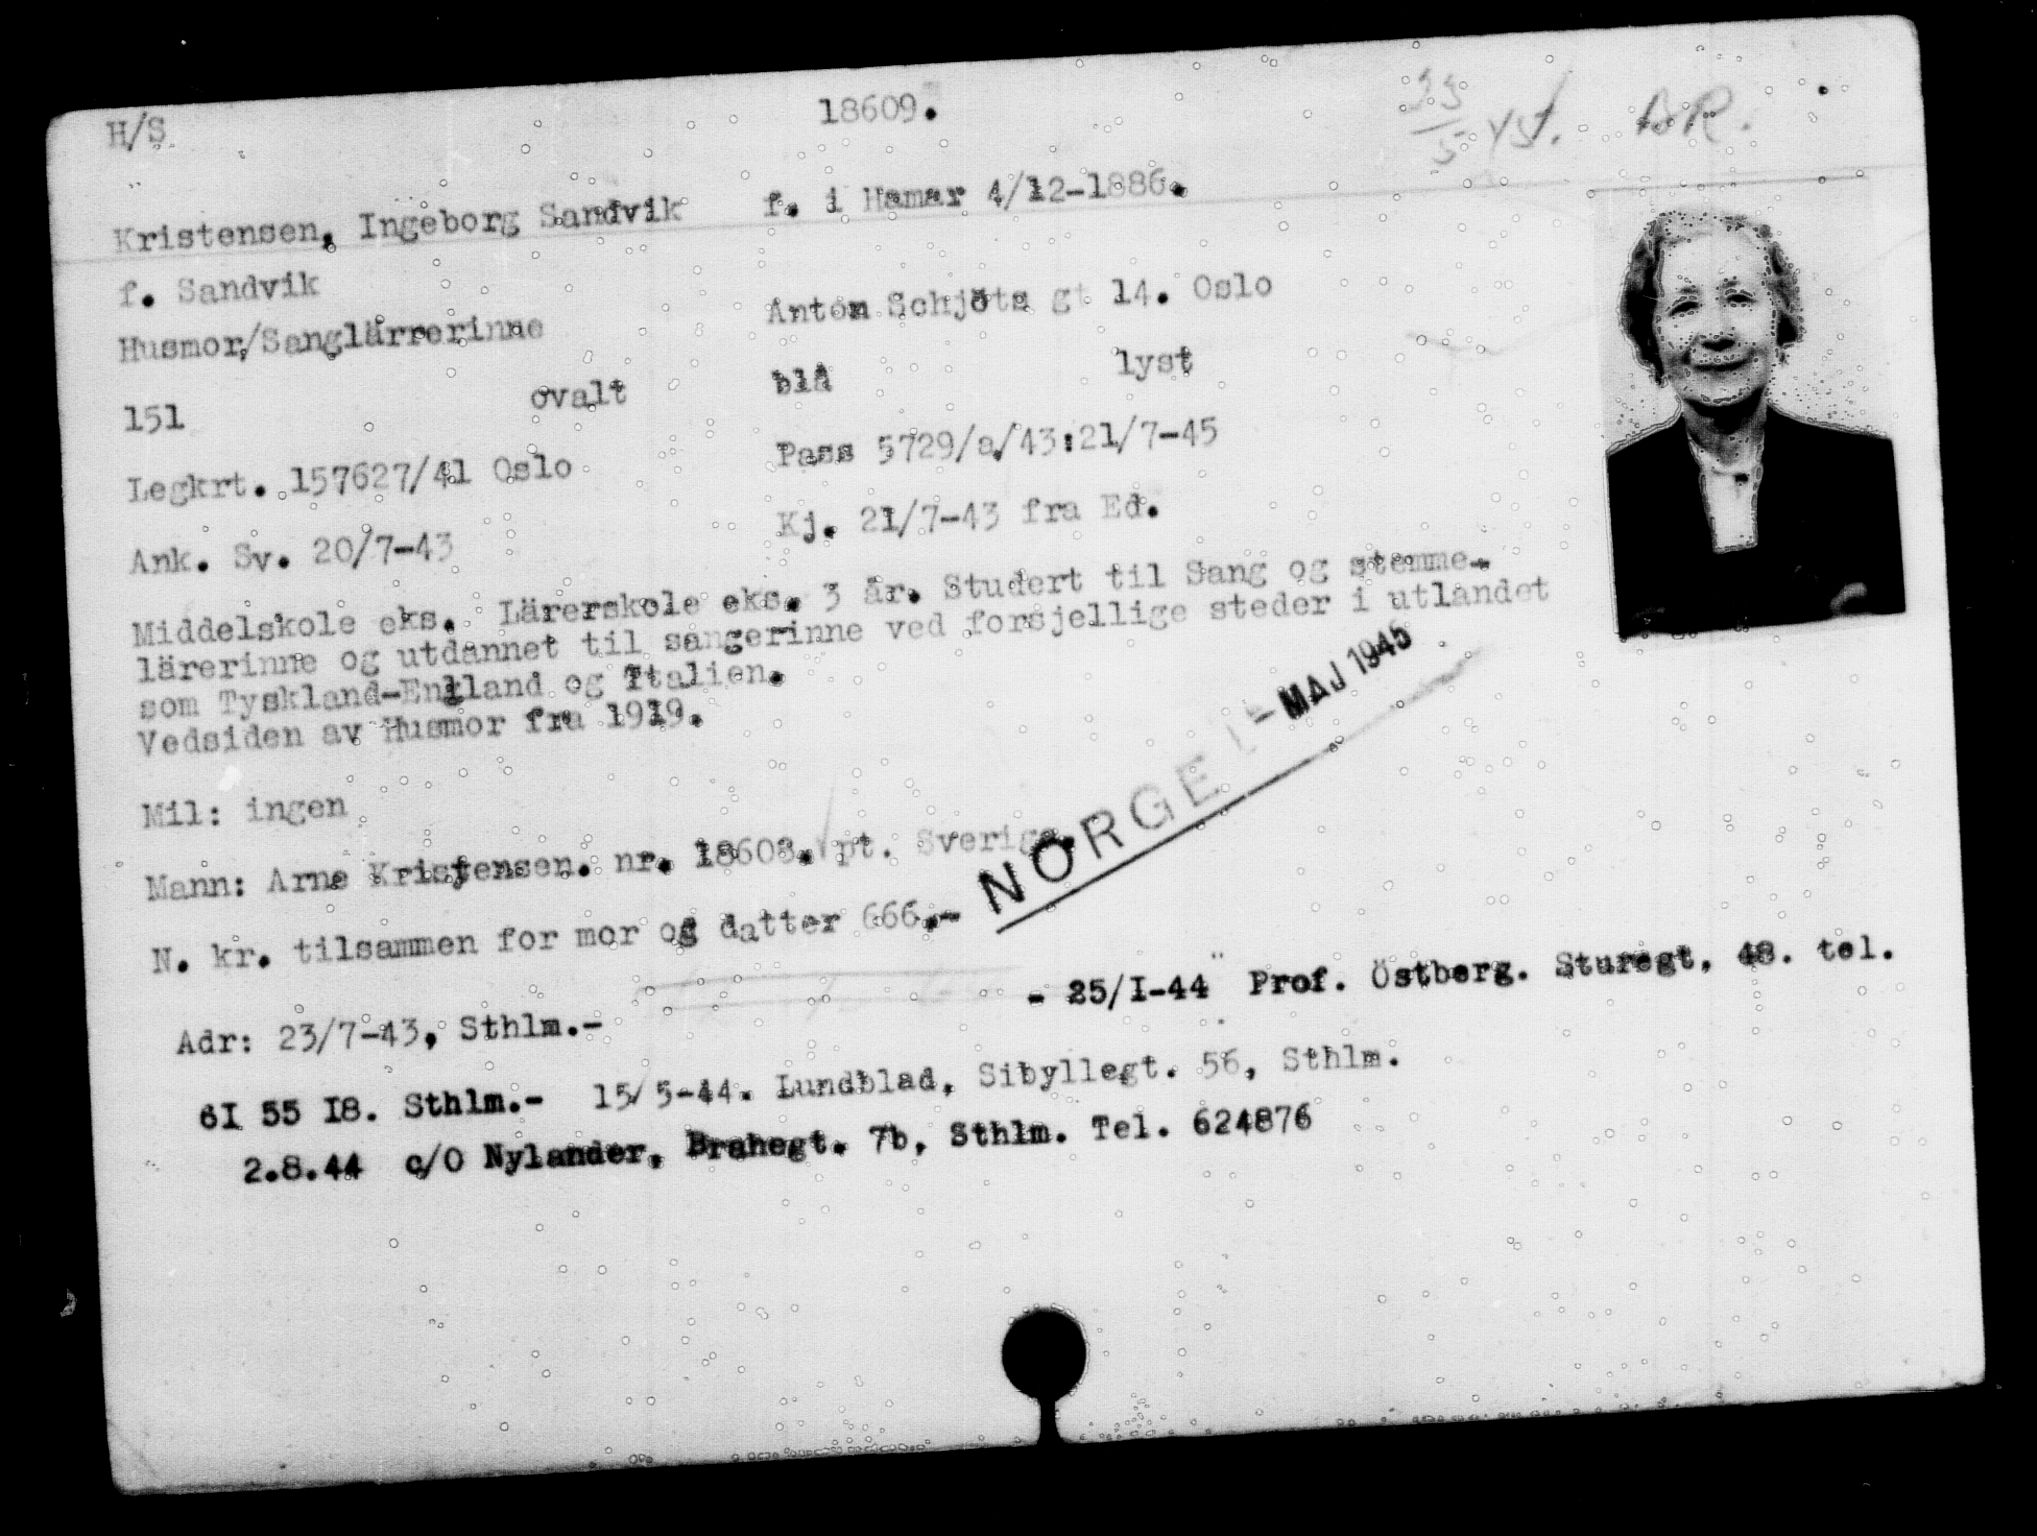 H/S 18609.
AR.
Kristensen, Ingeborg Sandvik f. i Hamar 4/12-1886.
f. Sandvik
Husmor/Sanglärrerinne Anton Schjöts gt 14. Oslo
151 ovalt blå lyst
Legkrt. 157627/41 Oslo Pass 5729/a/43:21/7-45
Ank. Sv. 20/7-43 Kj. 21/7-43 fra Ed.
Middelskole eks. Lärerskole eks. 3 år. Studert til Sang og stemme-
lärerinne og utdannet til sangerinne ved forsjellige steder i utlandet
som Tyskland-England og Italien.
Vedsiden av Husmor fra 1919.
Mil: ingen
Mann: Arne Kristensen. nr. 18608. pt. Sverige.
NORGE - MAJ 1945
N. kr. tilsammen for mor og datter 666,-
Adr: 23/7-43, Sthlm.- - 25/I-44 Prof. Östberg. Sturegt, 48. tel.
6I 55 I8. Sthlm.- 15/5-44. Lundblad, Sibyllegt. 56, Sthlm.
2.8.44 c/O Nylander, Brahegt. 7b, Sthlm. Tel. 624876